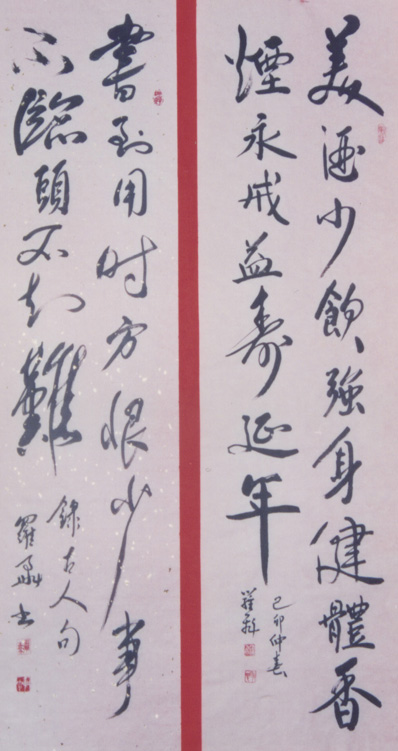 美酒少飲強身健體香
煙永戒益壽延年
己卯仲春
羅
書到用时方恨少事
不臨頭不知難
錄古人句
羅 书